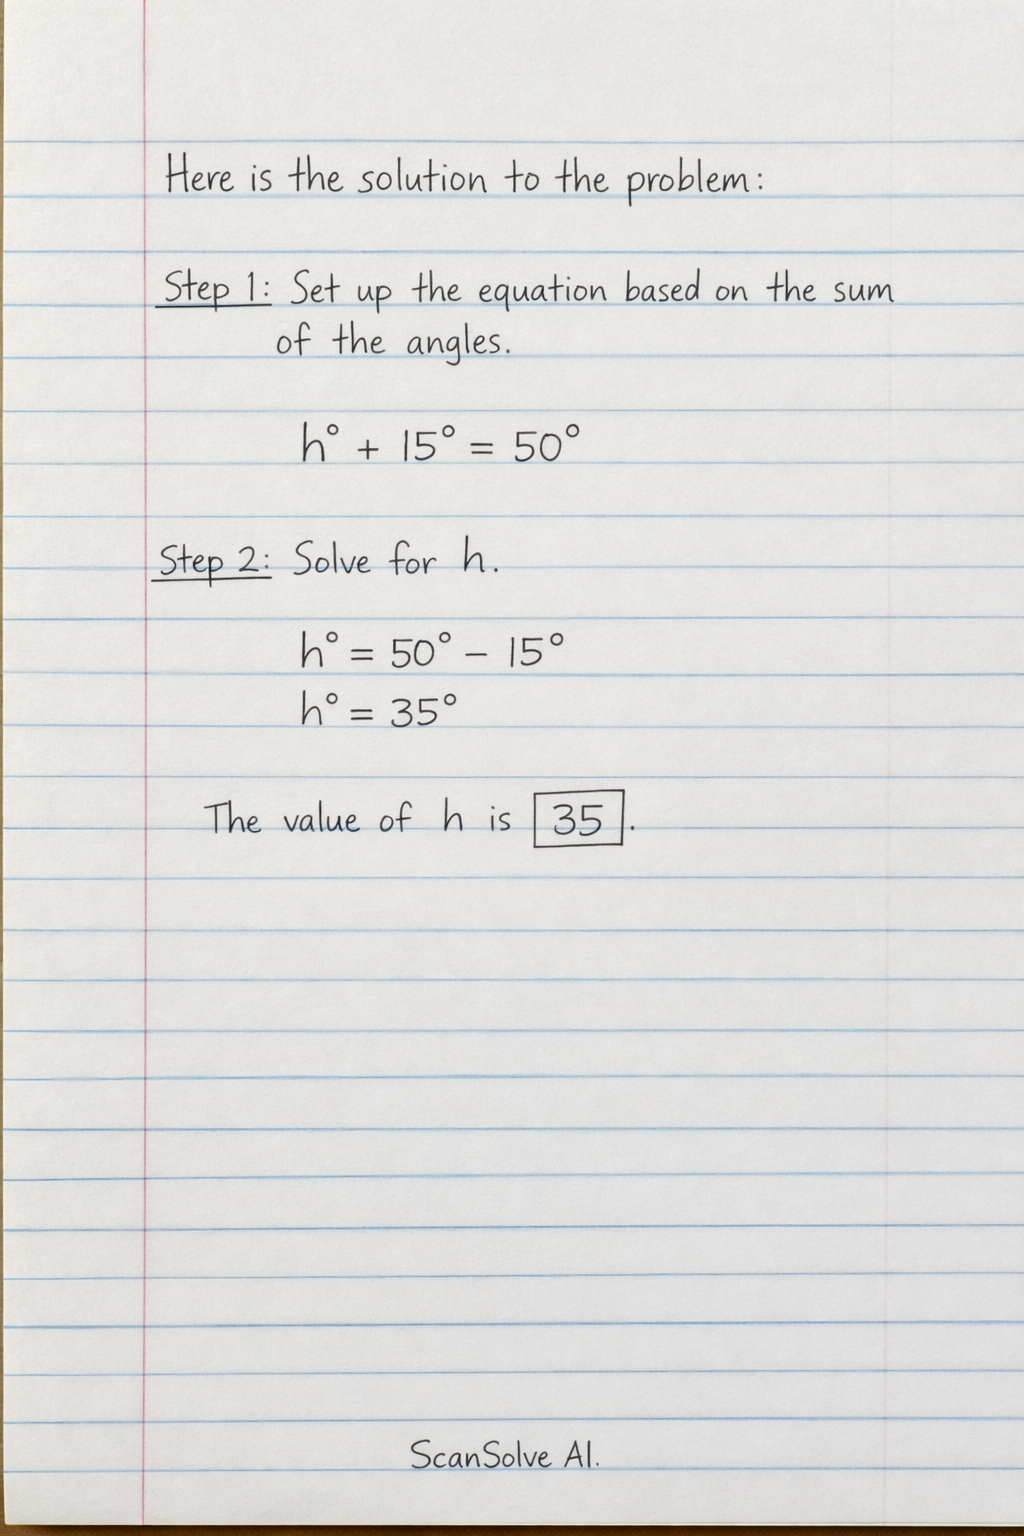 Here is the solution to the problem:
Step 1: Set up the equation based on the sum
of the angles.
h° + 15° = 50°
Step 2: Solve for h.
h° = 50° - 15°
h° = 35°
The value of h is 35.
ScanSolve AI.